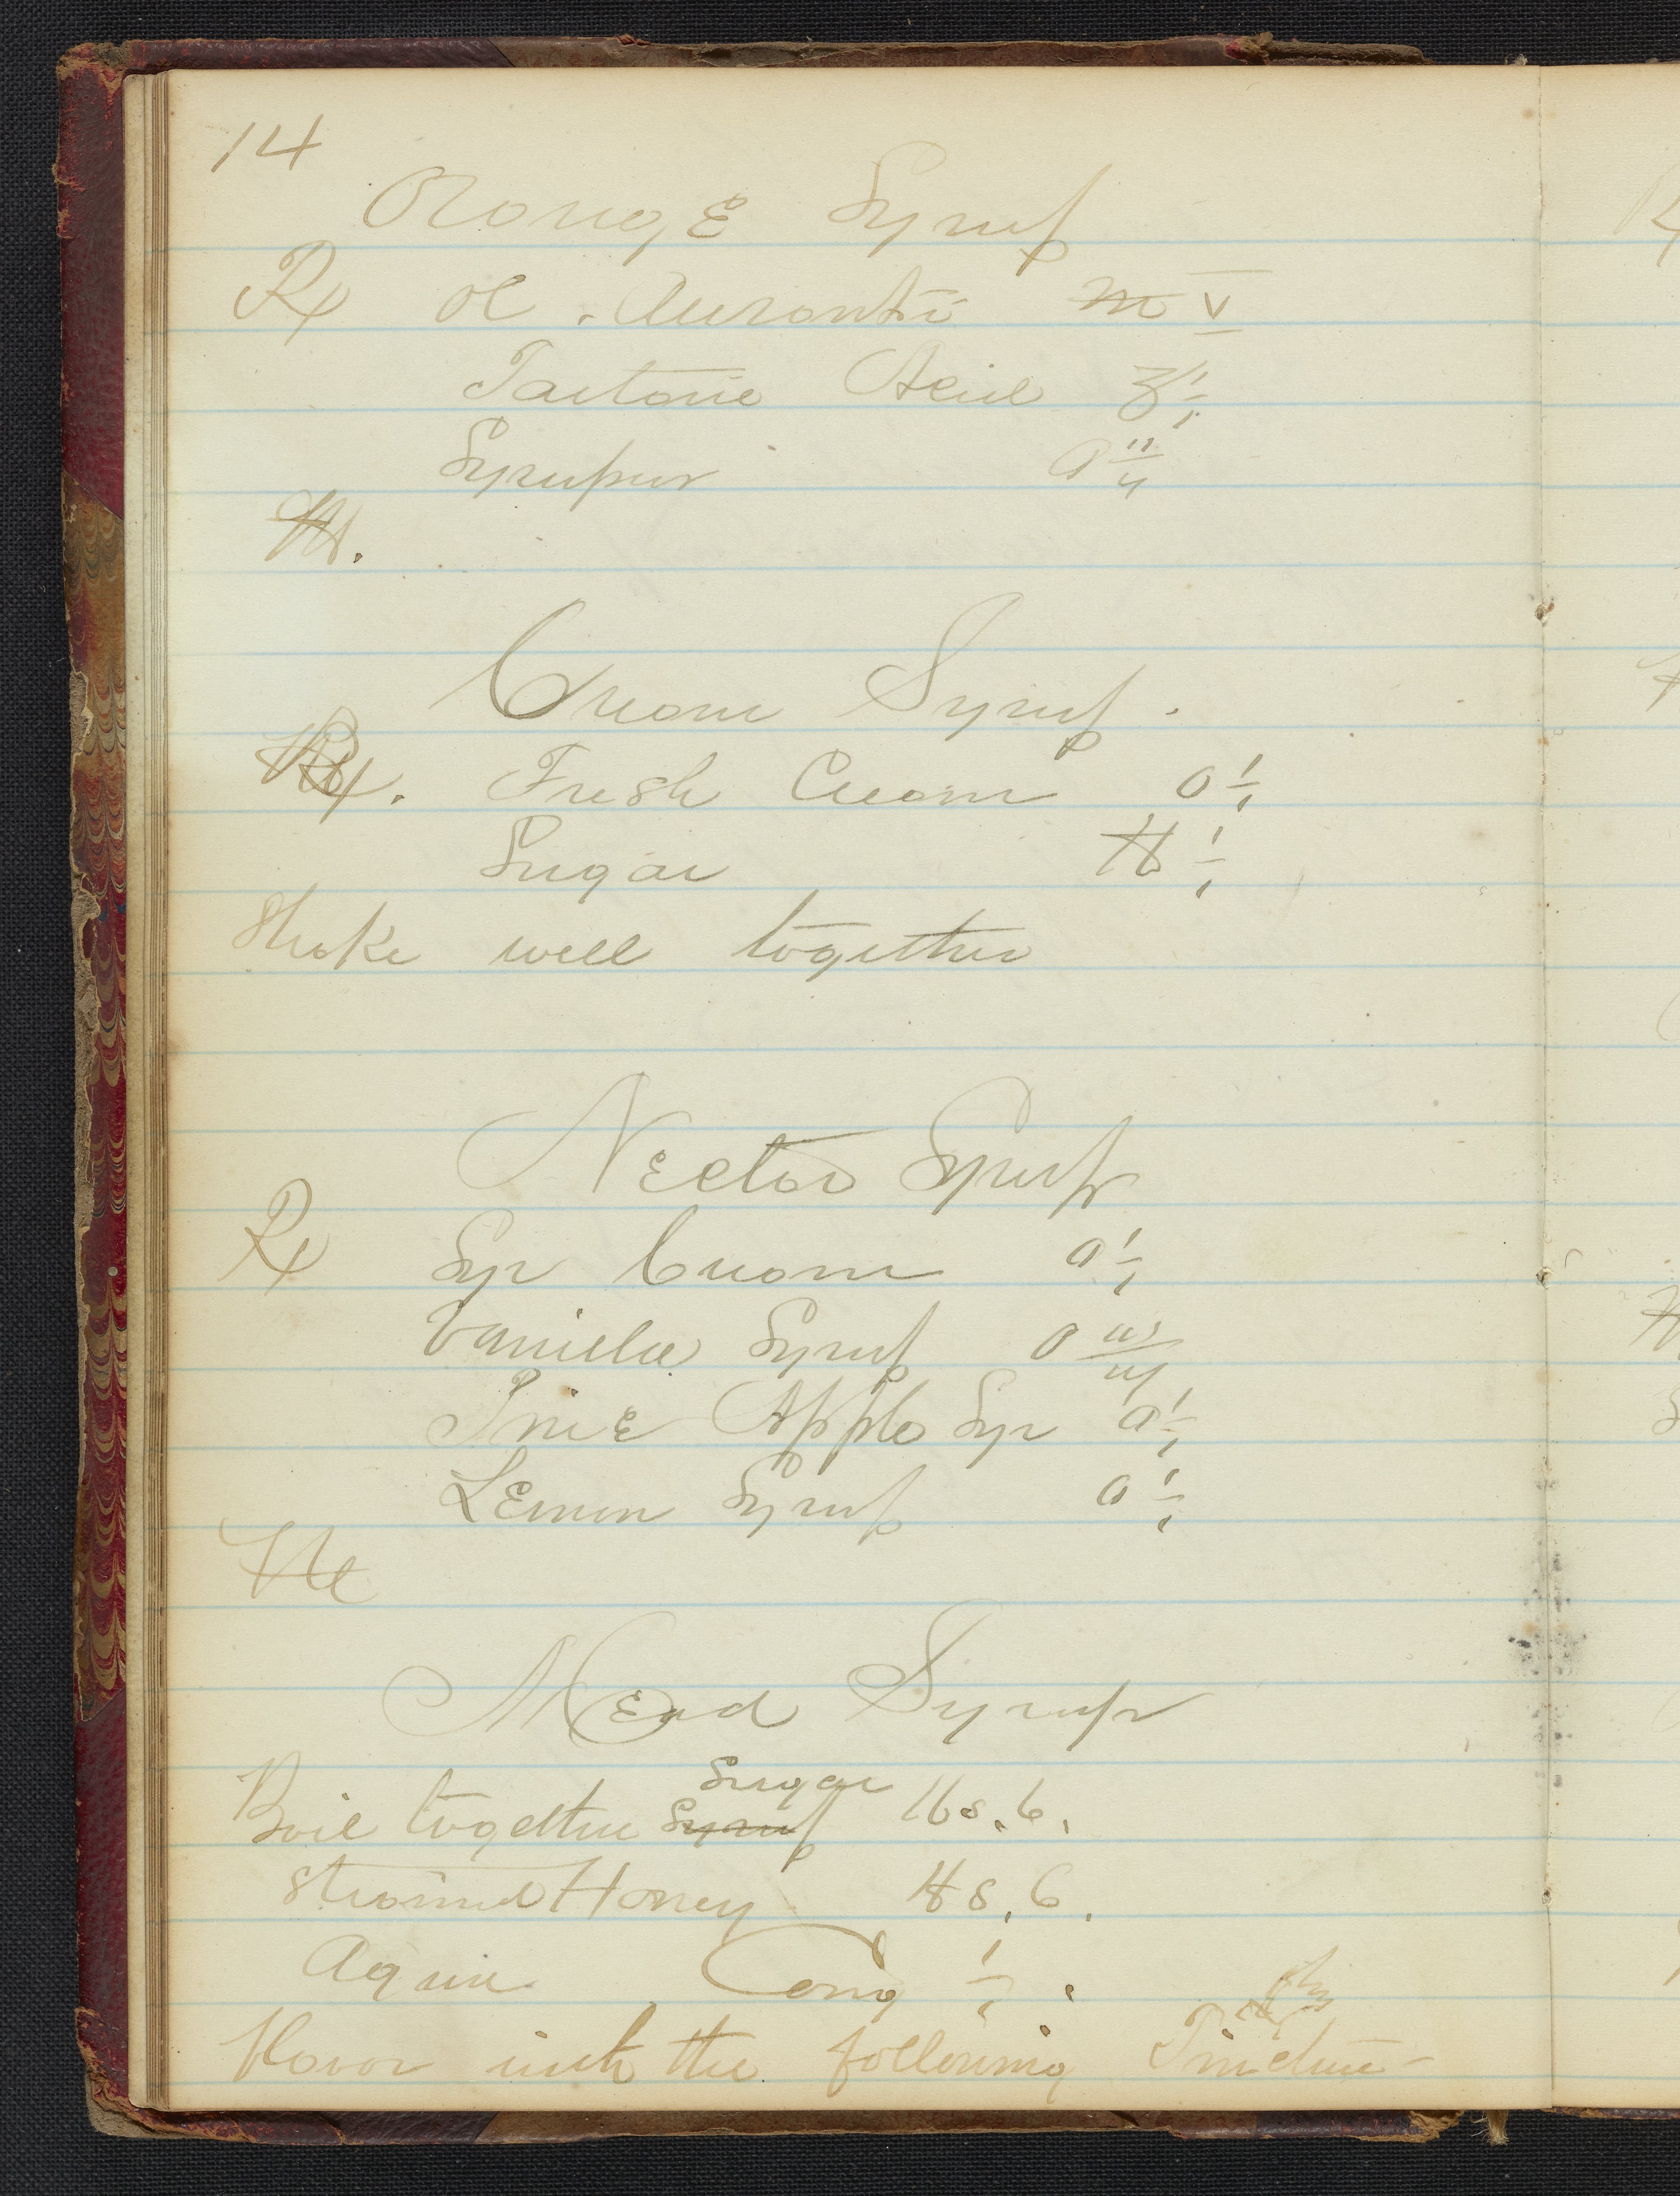 14
Orange Syrup
℞ Ol. Aurantii ♏ v
Tartaric Acid ℥ i
Syrupus O ii
M.
Cream Syrup.
℞. Fresh Cream O i
Sugar ℔ i
Shake well together
Nectar Syrup
℞ Syr Cream O i
Vanilla Syrup O iii
Pine Apple Syr O i
Lemon Syrup O i
M
Mead Syrup
Sugar
Boil together Syrup lbs. 6.
Strained Honey ℔s. 6.
Aquae Cong i.
Flavor with the following Tincture